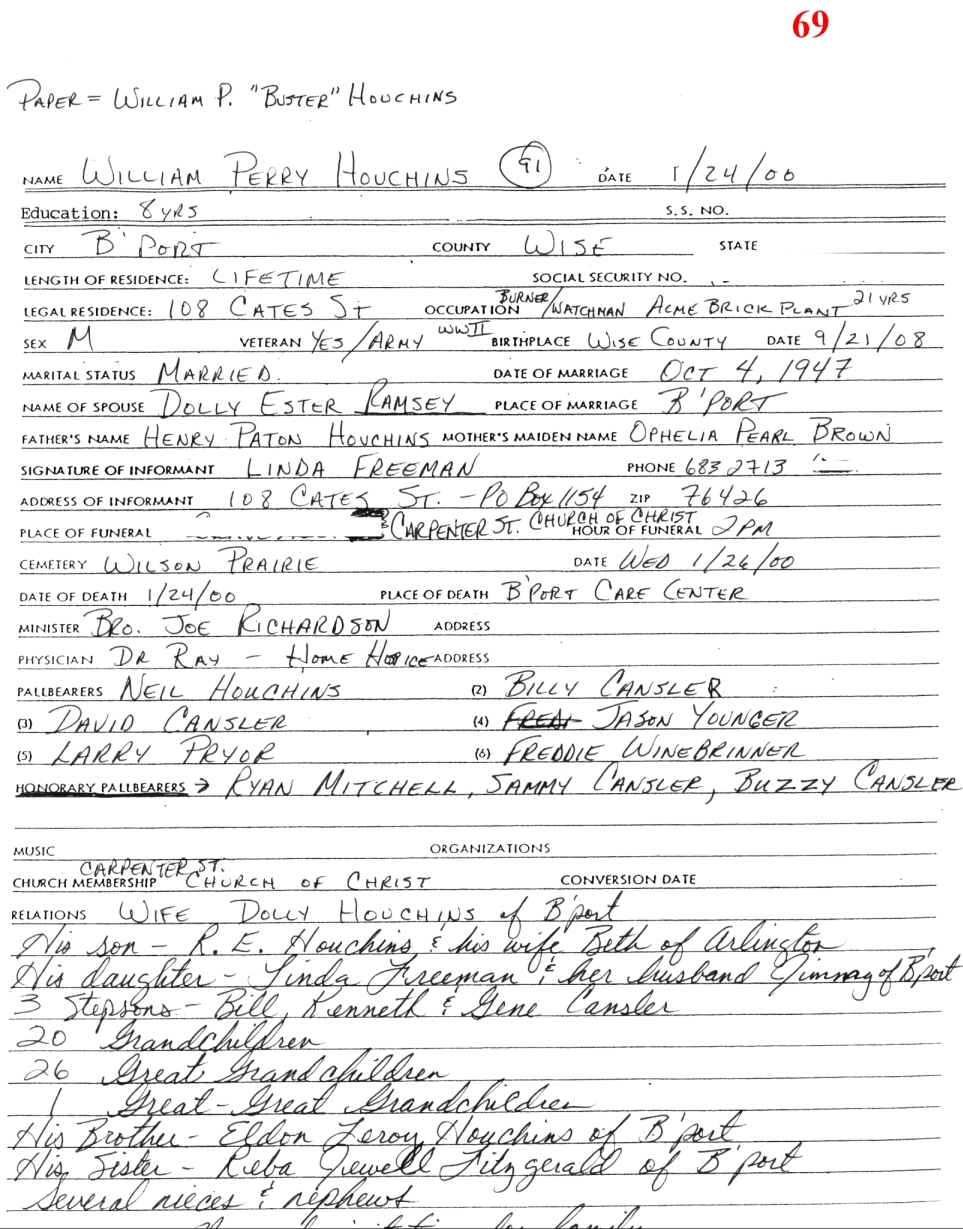 69
PAPER = WILLIAM P. "BUSTER" HOUCHINS
NAME WILLIAM PERRY HOUCHINS 91 DATE 1/24/00
Education: 8 YRS S.S. NO.
CITY B'PORT COUNTY WISE STATE
LENGTH OF RESIDENCE: LIFETIME SOCIAL SECURITY NO.
LEGAL RESIDENCE: 108 CATES ST OCCUPATION BURNER/WATCHMAN ACME BRICK PLANT 21 YRS
SEX M VETERAN YES/ARMY WWII BIRTHPLACE WISE COUNTY DATE 9/21/08
MARITAL STATUS MARRIED. DATE OF MARRIAGE OCT 4, 1947
NAME OF SPOUSE DOLLY ESTER RAMSEY PLACE OF MARRIAGE B'PORT
FATHER'S NAME HENRY PATON HOUCHINS MOTHER'S MAIDEN NAME OPHELIA PEARL BROWN
SIGNATURE OF INFORMANT LINDA FREEMAN PHONE 683 2713
ADDRESS OF INFORMANT 108 CATES ST. - PO BOX 1154 ZIP 76426
PLACE OF FUNERAL CARPENTER ST. CHURCH OF CHRIST HOUR OF FUNERAL 2 PM
CEMETERY WILSON PRAIRIE DATE WED 1/26/00
DATE OF DEATH 1/24/00 PLACE OF DEATH B'PORT CARE CENTER
MINISTER BRO. JOE RICHARDSON ADDRESS
PHYSICIAN DR RAY - HOME HOPICE ADDRESS
PALLBEARERS NEIL HOUCHINS (2) BILLY CANSLER
(3) DAVID CANSLER (4) JASON YOUNGER
(5) LARRY PRYOR (6) FREDDIE WINEBRINNER
HONORARY PALLBEARERS → RYAN MITCHELL, SAMMY CANSLER, BUZZY CANSLER
MUSIC ORGANIZATIONS
CHURCH MEMBERSHIP CARPENTER ST. CHURCH OF CHRIST CONVERSION DATE
RELATIONS WIFE DOLLY HOUCHINS of B'port
His son - R. E. Houchins & his wife Beth of Arlington
His daughter - Linda Freeman & her husband Jimmy of B'port
3 Stepsons - Bill, Kenneth & Gene Cansler
20 Grandchildren
26 Great Grandchildren
1 Great-Great Grandchildren
His Brother - Eldon Leroy Houchins of B'port
His Sister - Reba Jewell Fitzgerald of B'port
Several nieces & nephews